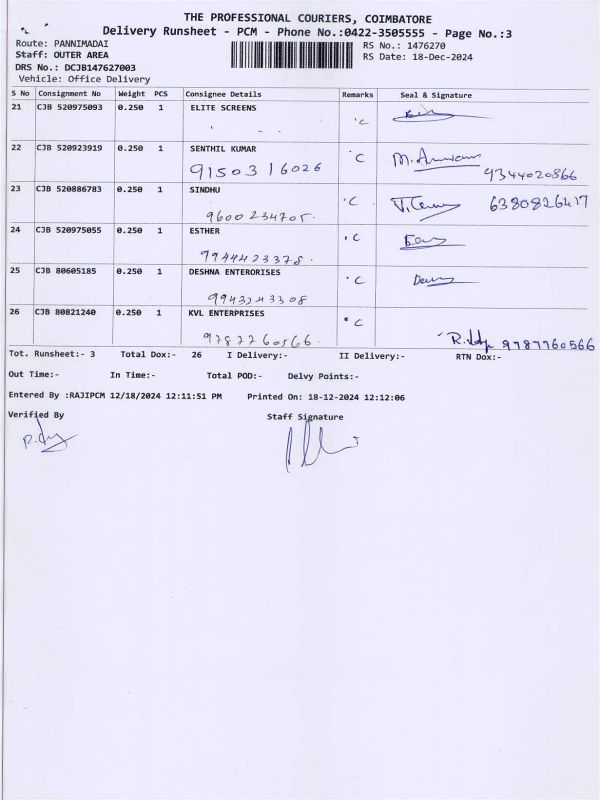 THE PROFESSIONAL COURIERS, COIMBATORE
Delivery Runsheet - PCM - Phone No.:0422-3505555 - Page No.:3
Route: PANNIMADAI
RS No.: 1476270
Staff: OUTER AREA
RS Date: 18-Dec-2024
DRS No.: DCJB147627003
Vehicle: Office Delivery
S No Consignment No Weight PCS Consignee Details Remarks Seal & Signature
21 CJB 520975093 0.250 1 ELITE SCREENS C
22 CJB 520923919 0.250 1 SENTHIL KUMAR C
9150316026 9344020866
23 CJB 520886783 0.250 1 SINDHU C 6380826417
9600234705.
24 CJB 520975055 0.250 1 ESTHER C
7944423378.
25 CJB 80605185 0.250 1 DESHNA ENTERORISES C
9943243308
26 CJB 80821240 0.250 1 KVL ENTERPRISES C
9787760566 9787760566
Tot. Runsheet:- 3 Total Dox:- 26 I Delivery:- II Delivery:- RTN Dox:-
Out Time:- In Time:- Total POD:- Delvy Points:-
Entered By :RAJIPCM 12/18/2024 12:11:51 PM Printed On: 18-12-2024 12:12:06
Verified By Staff Signature